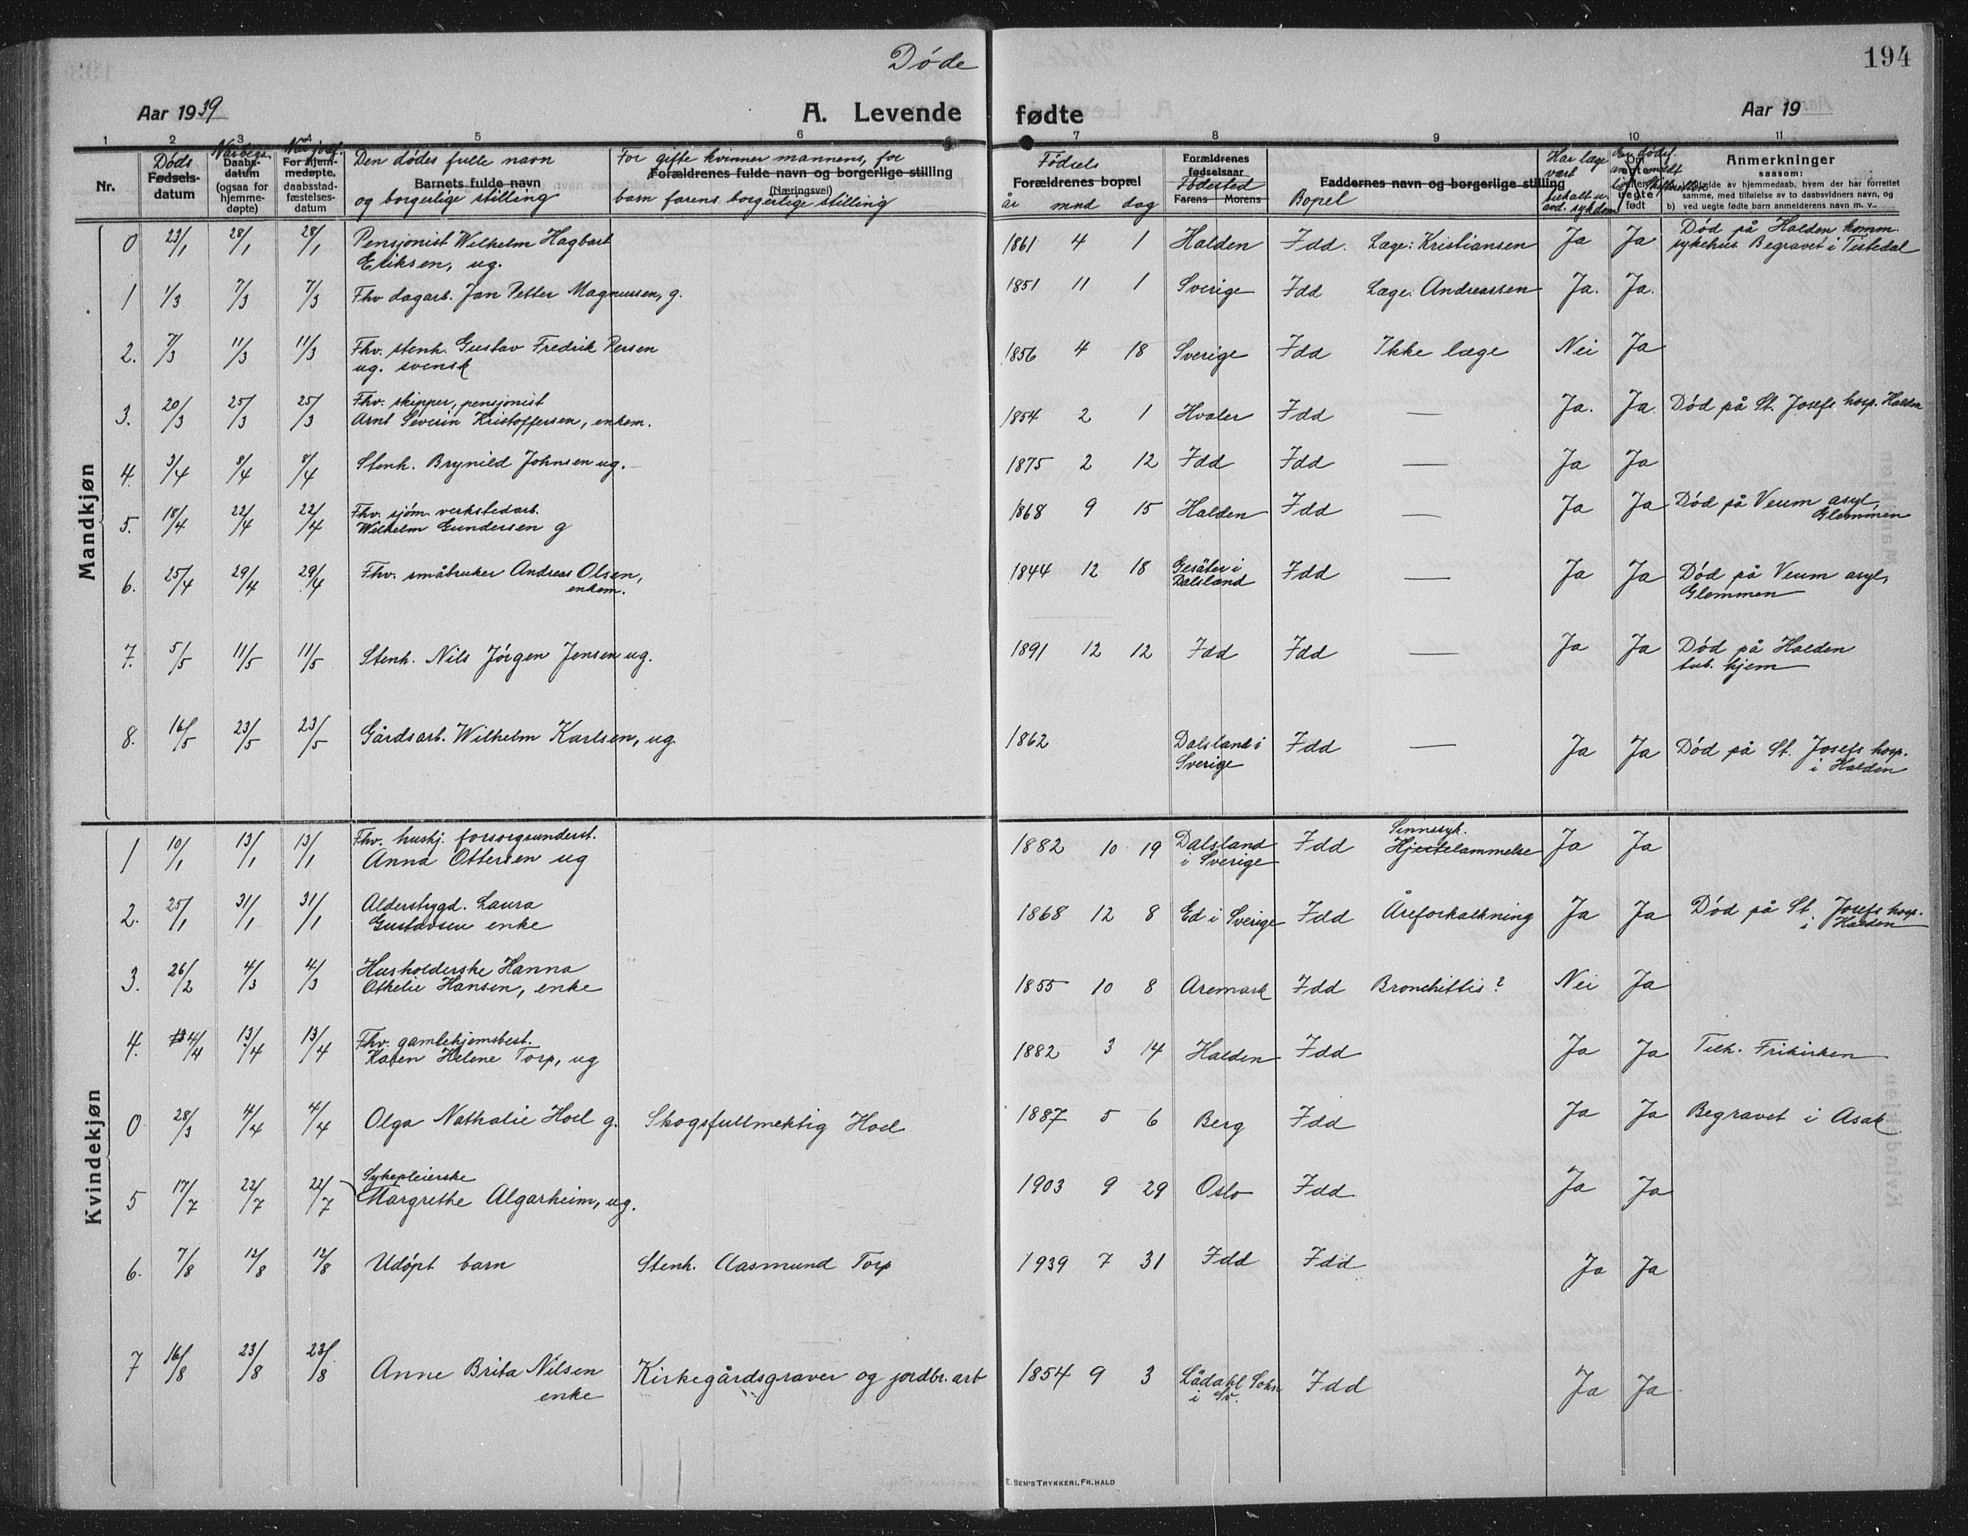 Døde
194
Aar 1939
A. Levende
fødte
Aar 19
1 2 3 4 5 6 7 8 9 10 11
Nr.
Døds
Fødsels-
datum
Når begr.
Daabs-
datum
(ogsaa for
hjemme-
døpte)
Når jordf.
For hjem-
medøpte,
daabsstad-
fæstelses-
datum
Den dødes fulle navn
Barnets fulde navn
og borgerlige stilling
For gifte kvinner mannens, for
Forældrenes fulde navn og borgerlige stilling
(Næringsvei)
barn farens borgerlige stilling
Fødsels
Forældrenes bopæl
år mnd dag
Forældrenes
fødselsaar
Fødested
Farens Morens
Faddernes navn og borgerlige stilling
Bopel
Har læge
vært
Anmerkninger
saasom:
ved uegte fødte barn anmelderens navn m. v.
Mandkjøn
0 23/1 28/1 28/1 Pensjonist Wilhelm Hagbart
Eriksen, ug. 1861 4 1 Halden Idd. Læge: Kristiansen Ja Ja Død på Halden komm.
sykehus Begravet i Tistedal
1 1/3 7/3 7/3 Fhv dagarb. Jan Petter Magnussen, g. 1851 11 1 Sverige Idd Læge: Andreassen Ja. Ja.
2. 7/3 11/3 11/3 Fhv. stenh. Gustav Fredrik Persen
ug. svensk 1856 4 18 Sverige Idd Ikke læge Nei Ja
3. 20/3 25/3 25/3 Fhv. skipper, pensjonist
Arnt Severin Kristoffersen, enkem. 1854 2 1 Hvaler Idd — Ja. Ja. Død på St. Josefs hosp. Halden
4. 3/4 8/4 8/4 Stenh. Brynild Johnsen ug. 1875 2 12 Idd Idd — Ja Ja
5. 18/4 22/4 22/4 Fhv. sjøm. verkstedarb.
Wilhelm Gundersen g 1868 9 15 Halden Idd — Ja Ja Død på Veum asyl,
Glemmen
6. 25/4 29/4 29/4 Fhv. småbruker Andreas Olsen,
enkem. 1844 12 18 Gesäter i
Dalsland Idd — Ja Ja Død på Veum asyl,
Glemmen
7. 5/5 11/5 11/5 Stenh. Nils Jørgen Jensen ug. 1891 12 12 Idd Idd — Ja Ja Død på Halden
tub. hjem
8. 16/5 23/5 23/5 Gårdsarb. Wilhelm Karlsen, ug. 1862 Dalsland i
Sverige Idd — Ja Ja Død på St. Josefs hosp.
i Halden
Kvindekjøn
1 10/1 13/1 13/1 Fhv. hushj. forsorgsunderst.
Anna Ottersen ug 1882 10 19 Dalsland
i Sverige Idd Sinnssyk.
Hjertelammelse Ja Ja
2. 25/1 31/1 31/1 Alderstrygd. Laura
Gustavsen enke 1868 12 8 Ed i Sverige Idd Åreforkalkning Ja Ja Død på St. Josefs hosp.
i Halden
3. 26/2 4/3 4/3 Husholderske Hanna
Othelie Hansen, enke 1855 10 8 Aremark Idd Bronchittis? Nei Ja
4. 4/4 13/4 13/4 Fhv. gamlehjemsbest.
Karen Helene Torp, ug 1882 3 14 Halden Idd Ja Ja Tilh. Frikirken
0 28/3 4/4 4/4 Olga Nathalie Hoel g. Skogsfullmektig Hoel 1887 5 6 Berg Idd Ja Ja Begravet i Asak
5 17/7 22/7 22/7 Sykepleierske
Margrethe Algarheim, ug. 1903 9 29 Oslo Idd Ja Ja
6. 7/8 12/8 12/8 Udøpt barn Stenh. Aasmund Torp 1939 7 31 Idd Idd Ja Ja
7 16/8 23/8 23/8 Anne Brita Nilsen
enke Kirkegårdsgraver og jordbr. arb 1854 9 3 Sokn
i Sv. Idd Ja Ja
E. SEM'S TRYKKERI, FR. HALD